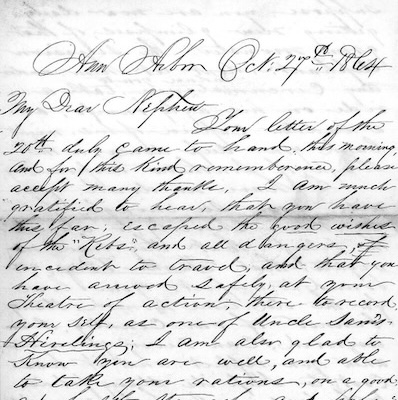 Ann Arbor Oct. 27th 1864
My Dear Nephew
Your letter of the
20th duly came to hand this morning
and for this kind rememberence, please
accept many thanks. I am much
gratified to hear, that you have
this far, escaped the good wishes
of the "Rebs", and all dangers,
encident to travel, and that you
have arived safely, at your
Theatre of action there to record
your self, as one of Uncle Sam's
Hirelings; I am also glad to
Know you are well, and able
to take your rations, on a good